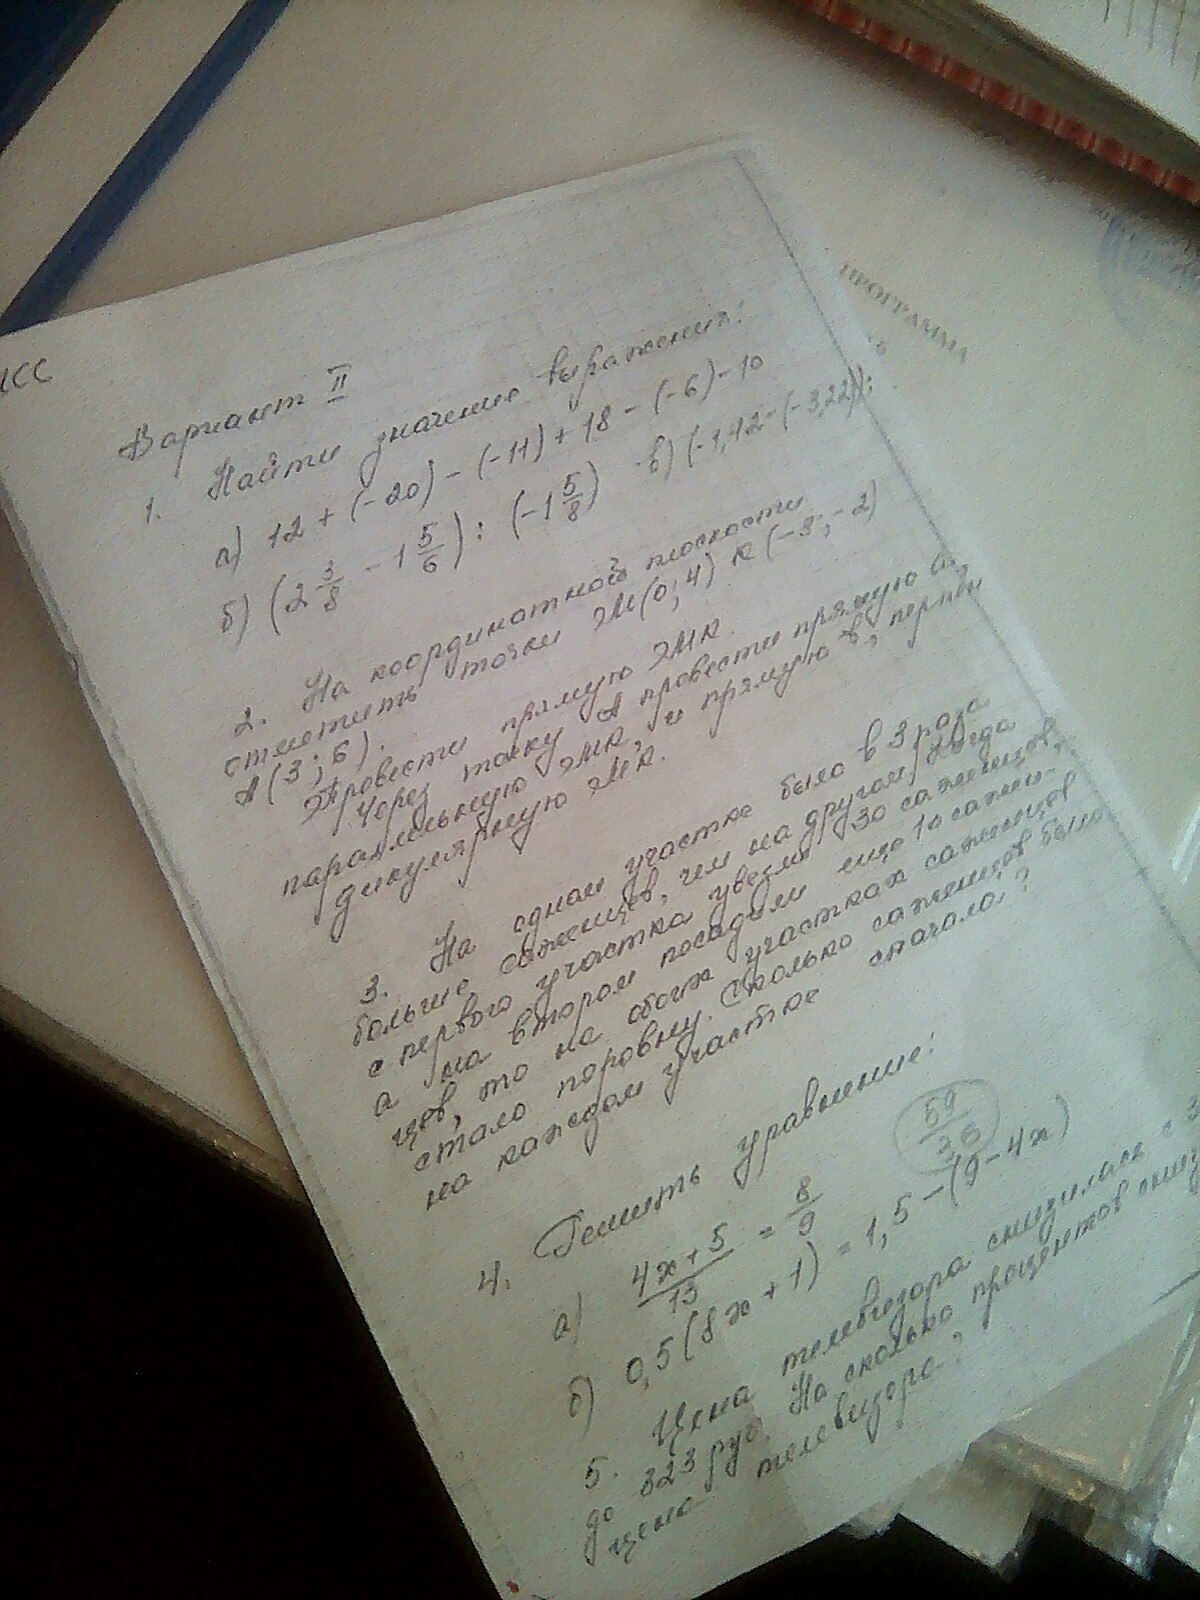 Вариант II
1. Найти значение выражения:
а) 12 + (-20) - (-11) + 18 - (-6) - 10
б) (2 3/8 - 1 5/6) : (-1 5/8) в) (-1,42 - (-3,22)) :
2. На координатной плоскости
отметить точки М(0; 4) К(-3; -2)
А(3; 6).
Провести прямую МК.
Через точку А провести прямую а,
параллельную МК, и прямую в, перпен
дикулярную МК.
3. На одном участке было в 3 раза
больше саженцев, чем на другом. Когда
с первого участка увезли 30 саженцев,
а на втором посадили еще 10 сажен-
цев, то на обоих участках саженцев
стало поровну. Сколько саженцев было
на каждом участке сначала?
4. Решить уравнение:
59/36
а) 4х+5/13 = 8/9
б) 0,5(8х + 1) = 1,5 - (9 - 4х)
5. Цена телевизора снизилась с
до 323 руб. На сколько процентов
цена телевизора?
ПРОГРАММА